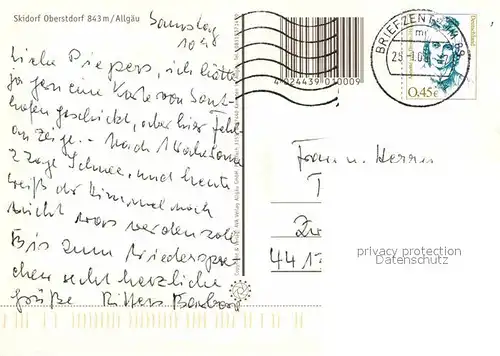 Skidorf Oberstdorf 843 m / Allgäu
Samstag
Liebe Piepers, ich hätte
ja gern eine Karte von Sont-
hofen geschickt, aber hier Fehl-
anzeige. - Nach 1 Woche Sonne
2 Tage Schnee, und heute
weiß der Himmel noch
nicht was werden soll.
Bis zum Wiederspre-
chen recht herzliche
Grüße
4 024439 010009
BRIEFZENTRUM 89
0,45€
Frau u. Herrn
441
privacy protection
Datenschutz